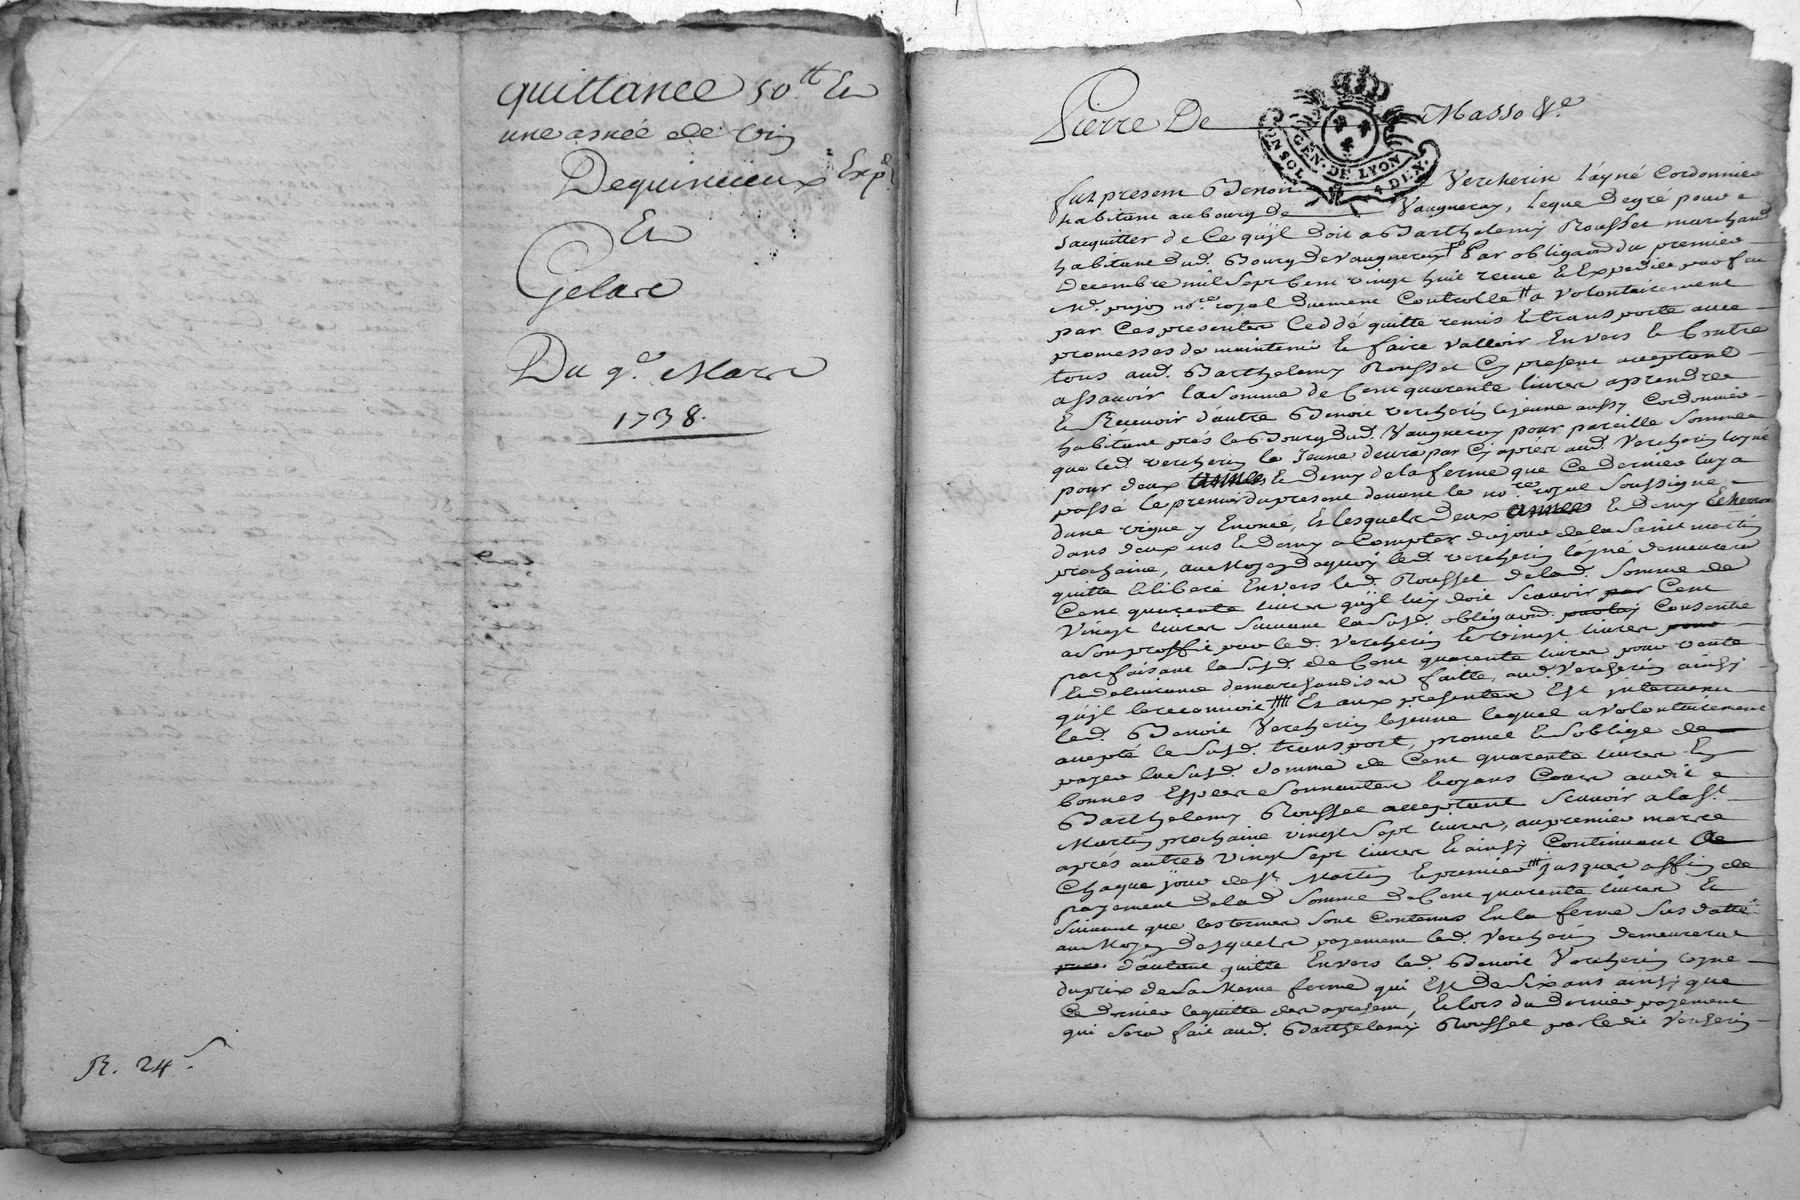 quittance 50tt Et
une asnée de vin
Dequincieux Expé
Et
Gelas
Du 9e. Mars
1738.
R. 24s.
Pierre De Masso &c
GEN. DE LYON
4 DEN.
fut present Benoit Vercherin l'ayné Cordonnier
habitant au bourg de Vaugneray, lequel de gré pour
sacquitter de ce qu'jl doit a Barthelemy Rousset marchand
habitant dud. Bourg de Vaugneray Par obligaon du premier
Decembre mil sept Cent vingt huit receue et Expediée par feu
Me. no.re royal duement Controllé a volontairement
par Ces presentes Ceddé quitte remis et transporte avec
promesses de maintenir et faire valloir Envers et Contre
tous aud. Barthelemy Rousset Cy present acceptant
assavoir la somme de Cent quarente livres a prendre
et Recevoir d'autre Benoit Vercherin le jeune aussy Cordonnier
habitant près le Bourg dud. Vaugneray pour pareille somme
que led. Vercherin le Jeune devra par Cy après aud. Vercherin layné
pour deux années et Demy de la ferme que Ce Dernier luy a
passé le premier du present devant le no.re royal soussigné
dune vigne y Enoncé, Et lesquels Deux années et demy
dans deux ans et Demy a Compter du jour de la Saint Martin
prochaine, au Moyen dequoy led. Vercherin layné demeurera
quitte et liberé Envers led. Rousset de lad. Somme de
Cent quarente livres qu'jl luy doit Scavoir par Cent
Vingt livres suivant la susd. obligaon. Consentie
a son proffit par led. Vercherin et vingt livres pour
parfaisant la susd. de Cent quarente livres pour vente
et delivrance de marchandises faitte, aud. Vercherin ainsy
qu'jl le reconnoit Et aux presentes Est jntervenu
led. Benoit Vercherin le jeune lequel a volontairement
accepté le susd. transport, promet et s'oblige de
payer la susd. somme de Cent quarente livres En
bonnes Especes sonnantes et ayans Cours audit
Barthelemy Rousset acceptant Scavoir a la St
Martin prochaine vingt sept livres, au premier mars
après autres vingt sept livres et ainsy Continuant
Chaque jour de St. Martin et premier jusques affin de
payement de lad. somme de Cent quarente livres Et
suivant que les termes sont Contenus En la ferme sus datté
au Moyen desquels payement led. Vercherin demeurera
d'autant quitte Envers led. Benoit Vercherin layné
du prix de sa Meme ferme qui Est de six ans ainsy que
Ce dernier le quitte des apresent, Et lors du dernier payement
qui sera fait aud. Barthelemy Rousset par ledit Vercherin